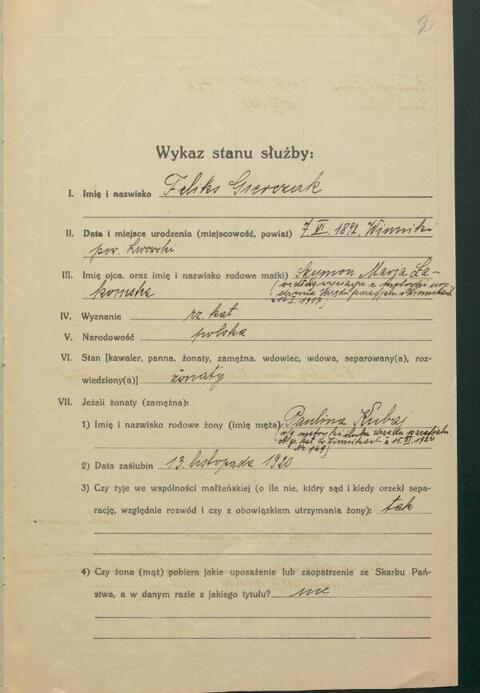 2
Wykaz stanu służby:
I. Imię i nazwisko Feliks Gierczak
II. Data i miejsce urodzenia (miejscowość, powiat) 7 VI. 1891, Winniki
pow. Lwowski
III. Imię ojca, oraz imię i nazwisko rodowe matki) Szymon Marja Ła-
komska (według wyciągu z metryki uro-
dzenia Urzędu parafjal. w Winnikach
z I. 1917)
IV. Wyznanie rz. kat
V. Narodowość polska
VI. Stan [kawaler, panna, żonaty, zamężna, wdowiec, wdowa, separowany(a), roz-
wiedziony(a)] żonaty
VII. Jeżeli żonaty (zamężna):
1) Imię i nazwisko rodowe żony (imię męża) Paulina Kubaj
metryki ślubu urzędu parafjaln.
gr. kat. w Winnikach z 15. VI. 1926
Nr 149)
2) Data zaślubin 13 listopada 1920
3) Czy żyje we wspólności małżeńskiej (o ile nie, który sąd i kiedy orzekł sepa-
rację, względnie rozwód i czy z obowiązkiem utrzymania żony): tak
4) Czy żona (mąż) pobiera jakie uposażenie lub zaopatrzenie ze Skarbu Pań-
stwa, a w danym razie z jakiego tytułu? nie